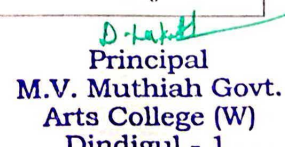 Principal
M.V. Muthiah Govt.
Arts College (W)
Dindigul - 1